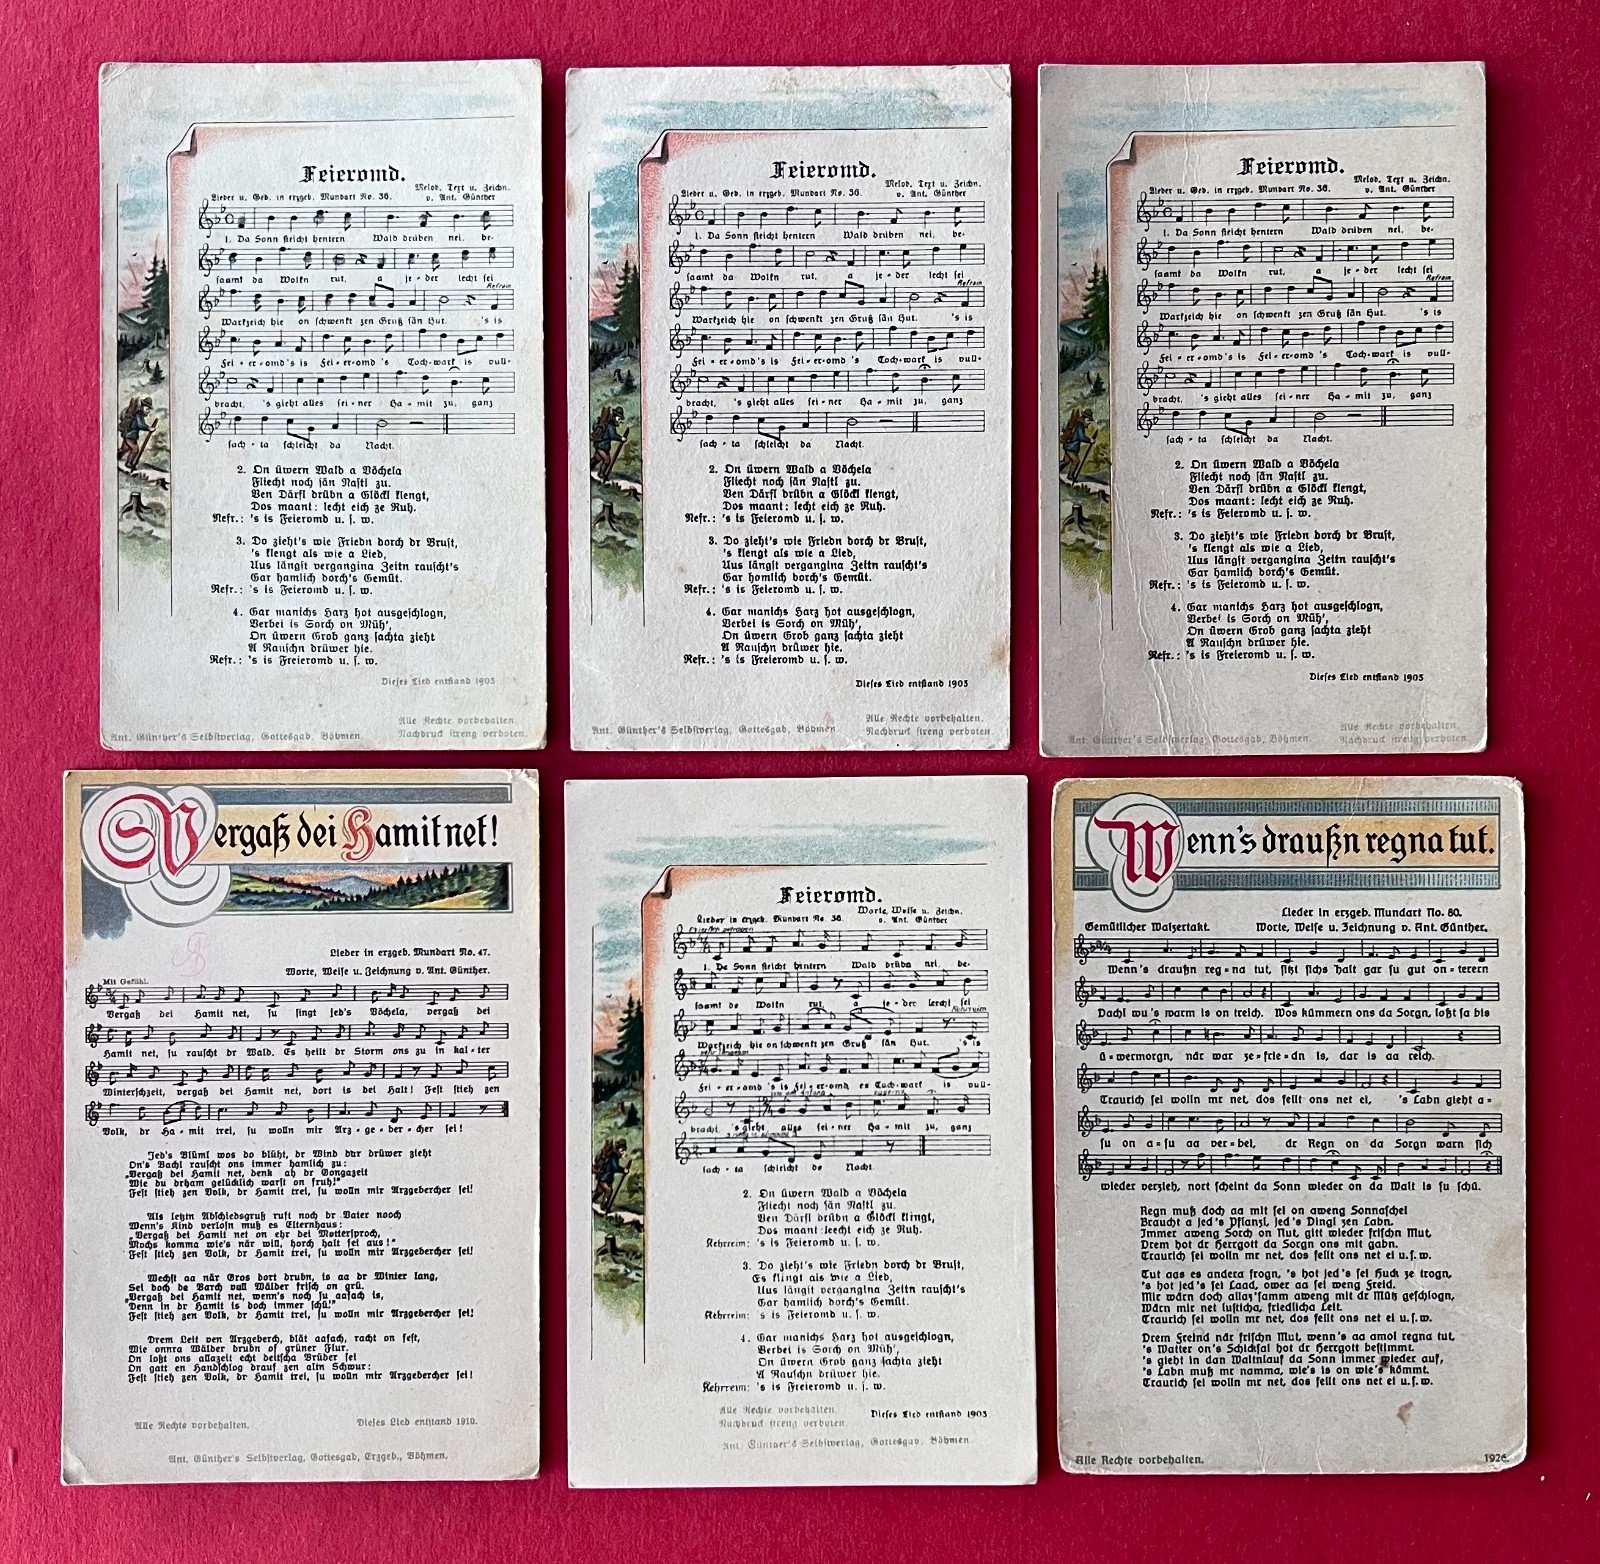 Feieromd.
Lieder u. Ged. in erzgeb. Mundart No. 36.
Melod. Text u. Zeichn.
v. Ant. Günther
1. Da Sonn steicht hentern Wald drüben nei, be-
saamt da Wolkn rut, a je-der lecht sei
Refrain
Warkzeich hie on schwenkt zen Gruß sän Hut. 's is
Fei-er-omd 's is Fei-er-omd 's Toch-wark is vull-
bracht, 's gieht alles sei-ner Ha-mit zu, ganz
sach-ta schleicht da Nacht.
2. On üwern Wald a Vöchela
Fliecht noch sän Nastl zu.
Ven Därfl drübn a Glöckl klengt,
Dos maant: lecht eich ze Ruh.
Refr.: 's is Feieromd u. s. w.
3. Do zieht's wie Friedn dorch dr Brust,
's klengt als wie a Lied,
Aus längst vergangina Zeitn rauscht's
Gar hamlich dorch's Gemüt.
Refr.: 's is Feieromd u. s. w.
4. Gar manichs Harz hot ausgeschlogn,
Verbei is Sorch on Müh',
On üwern Grob ganz sachta zieht
A Rauschn drüwer hie.
Refr.: 's is Freieromd u. s. w.
Dieses Lied entstand 1903
Alle Rechte vorbehalten.
Ant. Günther's Selbstverlag, Gottesgab, Böhmen.
Nachdruck streng verboten.
Feieromd.
Lieder u. Ged. in erzgeb. Mundart No. 36.
Melod. Text u. Zeichn.
v. Ant. Günther
1. Da Sonn steicht hentern Wald drüben nei, be-
saamt da Wolkn rut, a je-der lecht sei
Refrain
Warkzeich hie on schwenkt zen Gruß sän Hut. 's is
Fei-er-omd 's is Fei-er-omd 's Toch-wark is vull-
bracht, 's gieht alles sei-ner Ha-mit zu, ganz
sach-ta schleicht da Nacht.
2. On üwern Wald a Vöchela
Fliecht noch sän Nastl zu.
Ven Därfl drübn a Glöckl klengt,
Dos maant: lecht eich ze Ruh.
Refr.: 's is Feieromd u. s. w.
3. Do zieht's wie Friedn dorch dr Brust,
's klengt als wie a Lied,
Aus längst vergangina Zeitn rauscht's
Gar homlich dorch's Gemüt.
Refr.: 's is Feieromd u. s. w.
4. Gar manichs Harz hot ausgeschlogn,
Verbei is Sorch on Müh',
On üwern Grob ganz sachta zieht
A Rauschn drüwer hie.
Refr.: 's is Freieromd u. s. w.
Dieses Lied entstand 1903
Alle Rechte vorbehalten.
Ant. Günther's Selbstverlag, Gottesgab, Böhmen.
Nachdruck streng verboten.
Feieromd.
Lieder u. Ged. in erzgeb. Mundart No. 36.
Melod. Text u. Zeichn.
v. Ant. Günther
1. Da Sonn steicht hentern Wald drüben nei, be-
saamt da Wolkn rut, a je-der lecht sei
Refrain
Warkzeich hie on schwenkt zen Gruß sän Hut. 's is
Fei-er-omd 's is Fei-er-omd 's Toch-wark is vull-
bracht, 's gieht alles sei-ner Ha-mit zu, ganz
sach-ta schleicht da Nacht.
2. On üwern Wald a Vöchela
Fliecht noch sän Nastl zu.
Ven Därfl drübn a Glöckl klengt,
Dos maant: lecht eich ze Ruh.
Refr.: 's is Feieromd u. s. w.
3. Do zieht's wie Friedn dorch dr Brust,
's klengt als wie a Lied,
Aus längst vergangina Zeitn rauscht's
Gar hamlich dorch's Gemüt.
Refr.: 's is Feieromd u. s. w.
4. Gar manichs Harz hot ausgeschlogn,
Verbei is Sorch on Müh',
On üwern Grob ganz sachta zieht
A Rauschn drüwer hie.
Refr.: 's is Freieromd u. s. w.
Dieses Lied entstand 1903
Alle Rechte vorbehalten.
Ant. Günther's Selbstverlag, Gottesgab, Böhmen.
Nachdruck streng verboten.
Vergaß dei Hamit net!
Lieder in erzgeb. Mundart No. 47.
Worte, Weise u. Zeichnung v. Ant. Günther.
Mit Gefühl.
Vergaß dei Hamit net, su singt jed's Vöchela, vergaß dei
Hamit net, su rauscht dr Wald. Es heilt dr Storm ons zu in kal-ter
Winterschzeit, vergaß dei Hamit net, dort is dei Halt! Fest stieh zen
Volk, dr Ha-mit trei, su wolln mir Arz-ge-ber-cher sei!
Jed's Blüml wos do blüht, dr Wind dar drüwer zieht
On's Bachl rauscht ons immer hamlich zu:
„Vergaß dei Hamit net, denk ah dr Gongazeit
Wie du drham gelücklich warst on fruh!“
Fest stieh zen Volk, dr Hamit trei, su wolln mir Arzgebercher sei!
Als letzin Abschiedsgruß ruft noch dr Vater nooch
Wenn's Kind verlosn muß es Elternhaus:
„Vergaß dei Hamit net on ehr dei Mottersproch,
Mochs komma wie's när will, horch halt sei aus!“
Fest stieh zen Volk, dr Hamit trei, su wolln mir Arzgebercher sei!
Wechst aa när Gros dort drubn, is aa dr Winter lang,
Sei doch de Barch vull Wälder frisch on grü.
„Vergaß dei Hamit net, wenn's noch su aafach is,
Denn in dr Hamit is doch immer schü!“
Fest stieh zen Volk, dr Hamit trei, su wolln mir Arzgebercher sei!
Drem Leit ven Arzgeberch, blät aafach, racht on fest,
Wie onnra Wälder drubn of grüner Flur.
On loßt ons allazeit echt deitscha Brüder sei
On gatt en Handschlog drauf zen altn Schwur:
Fest stieh zen Volk, dr Hamit trei, su wolln mir Arzgebercher sei!
Alle Rechte vorbehalten.
Dieses Lied entstand 1910.
Ant. Günther's Selbstverlag, Gottesgab, Erzgeb., Böhmen.
Feieromd.
Lieder in erzgeb. Mundart No 36.
Worte, Weise u. Zeichn.
v. Ant. Günther
1. De Sonn steicht hintern Wald drübn nei, be-
saamt de Wolkn rut, a je-der leecht sei
Kehrreim
Warkzeich hie on schwenkt zen Gruß sän Hut. 's is
Fei-er-omd 's is Fei-er-omd, es Tochwark is vull-
bracht, 's gieht alles sei-ner Ha-mit zu, ganz
sach-ta schleicht de Nacht
2. On üwern Wald a Vöchela
Fliecht noch sän Nastl zu.
Ven Därfl drübn a Glöckl klingt,
Dos maant: leecht eich ze Ruh.
Kehrreim: 's is Feieromd u. s. w.
3. Do zieht's wie Friedn dorch dr Brust,
Es klingt als wie a Lied,
Aus längst vergangina Zeitn rauscht's
Gar hamlich dorch's Gemüt.
Kehrreim: 's is Feieromd u. s. w.
4. Gar manichs Harz hot ausgeschlogn,
Verbei is Sorch on Müh',
On üwern Grob ganz sachta zieht
A Rauschn drüwer hie.
Kehrreim: 's is Freieromd u. s. w.
Alle Rechte vorbehalten.
Dieses Lied entstand 1903
Nachdruck streng verboten.
Ant. Günther's Selbstverlag, Gottesgab, Böhmen
Wenn's draußn regna tut.
Lieder in erzgeb. Mundart No. 80.
Gemütlicher Walzertakt.
Worte, Weise u. Zeichnung v. Ant. Günther.
Wenn's draußn reg-na tut, sitzt sichs halt gar su gut on-terern
Dachl wu's warm is on treich. Wos kümmern ons da Sorgn, loßt sa bis
ü-wermorgn, när war ze-frie-dn is, dar is aa reich.
Traurich sei wolln mr net, dos fellt ons net ei, 's Labn gieht a-
su on a-su aa ver-bei, dr Regn on da Sorgn warn sich
wieder verzieh, nort scheint da Sonn wieder on da Walt is su schü.
Regn muß doch aa mit sei on aweng Sonnaschei
Braucht a jed's Pflanzl, jed's Dingl zen Labn.
Immer aweng Sorch on Nut, gitt wieder frischn Mut,
Drem hot dr Herrgott da Sorgn ons mit gabn.
Traurich sei wolln mr net, dos fellt ons net ei u. s. w.
Tut aas es andera frogn, 's hot jed's sei Huck ze trogn,
's hot jed's sei Laad, ower aa sei weng Freid.
Mir wärn doch allaz'samm aweng mit dr Mütz geschlogn,
Wärn mir net lusticha, friedlicha Leit.
Traurich sei wolln mr net, dos fellt ons net ei u. s. w.
Drem Freind när frischn Mut, wenn's aa amol regna tut,
's Watter on's Schicksal hot dr Herrgott bestimmt.
's gieht in dan Waltnlauf da Sonn immer wieder auf,
's Labn muß mr namma, wie's is on wie's kömmt.
Traurich sei wolln mr net, dos fellt ons net ei u. s. w.
Alle Rechte vorbehalten.
1926.